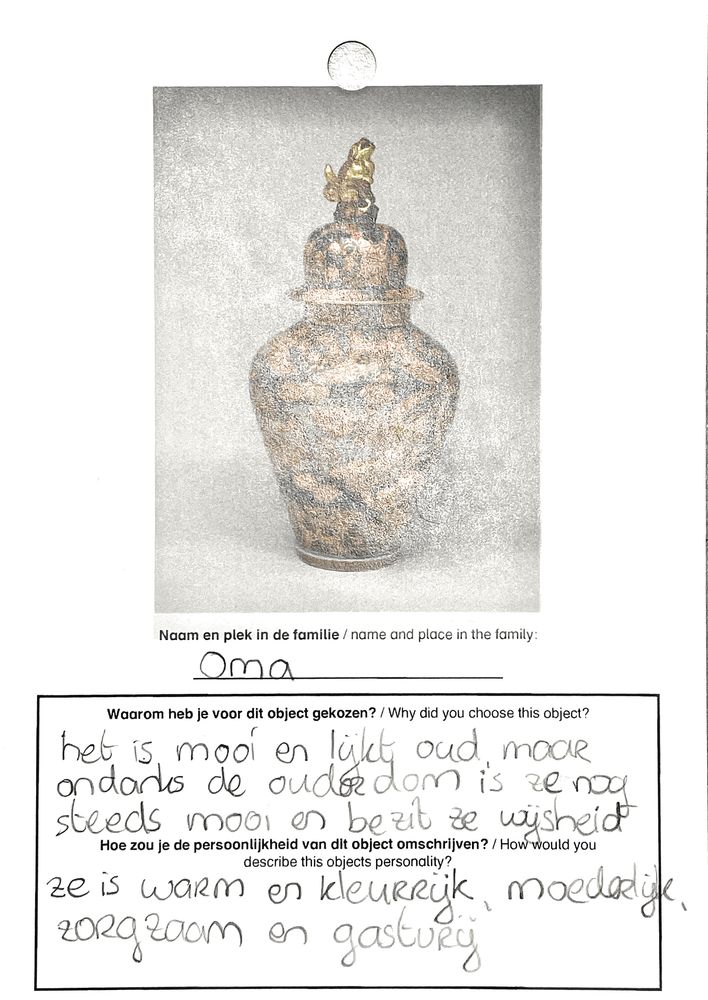 Naam en plek in de familie / name and place in the family:
Oma
Waarom heb je voor dit object gekozen? / Why did you choose this object?
het is mooi en lijkt oud, maar
ondanks de ouderdom is ze nog
steeds mooi en bezit ze wijsheid
Hoe zou je de persoonlijkheid van dit object omschrijven? / How would you
describe this objects personality?
ze is warm en kleurrijk, moederlijk,
zorgzaam en gastvrij